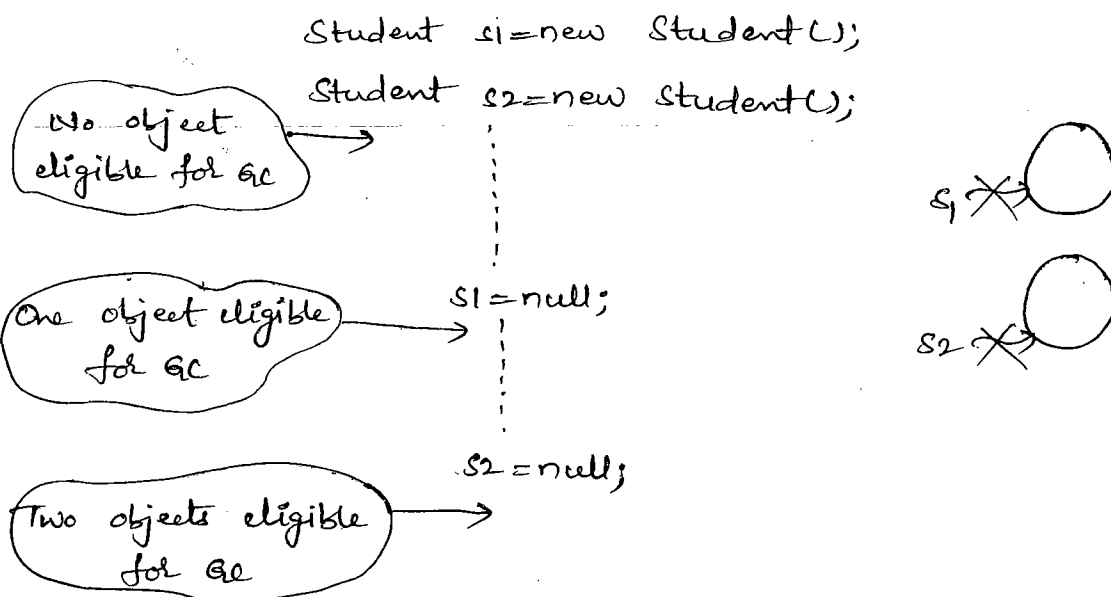 Student s1=new Student();
Student s2=new Student();
No object
eligible for GC
S1
One object eligible
for GC
s1=null;
S2
s2=null;
Two objects eligible
for GC